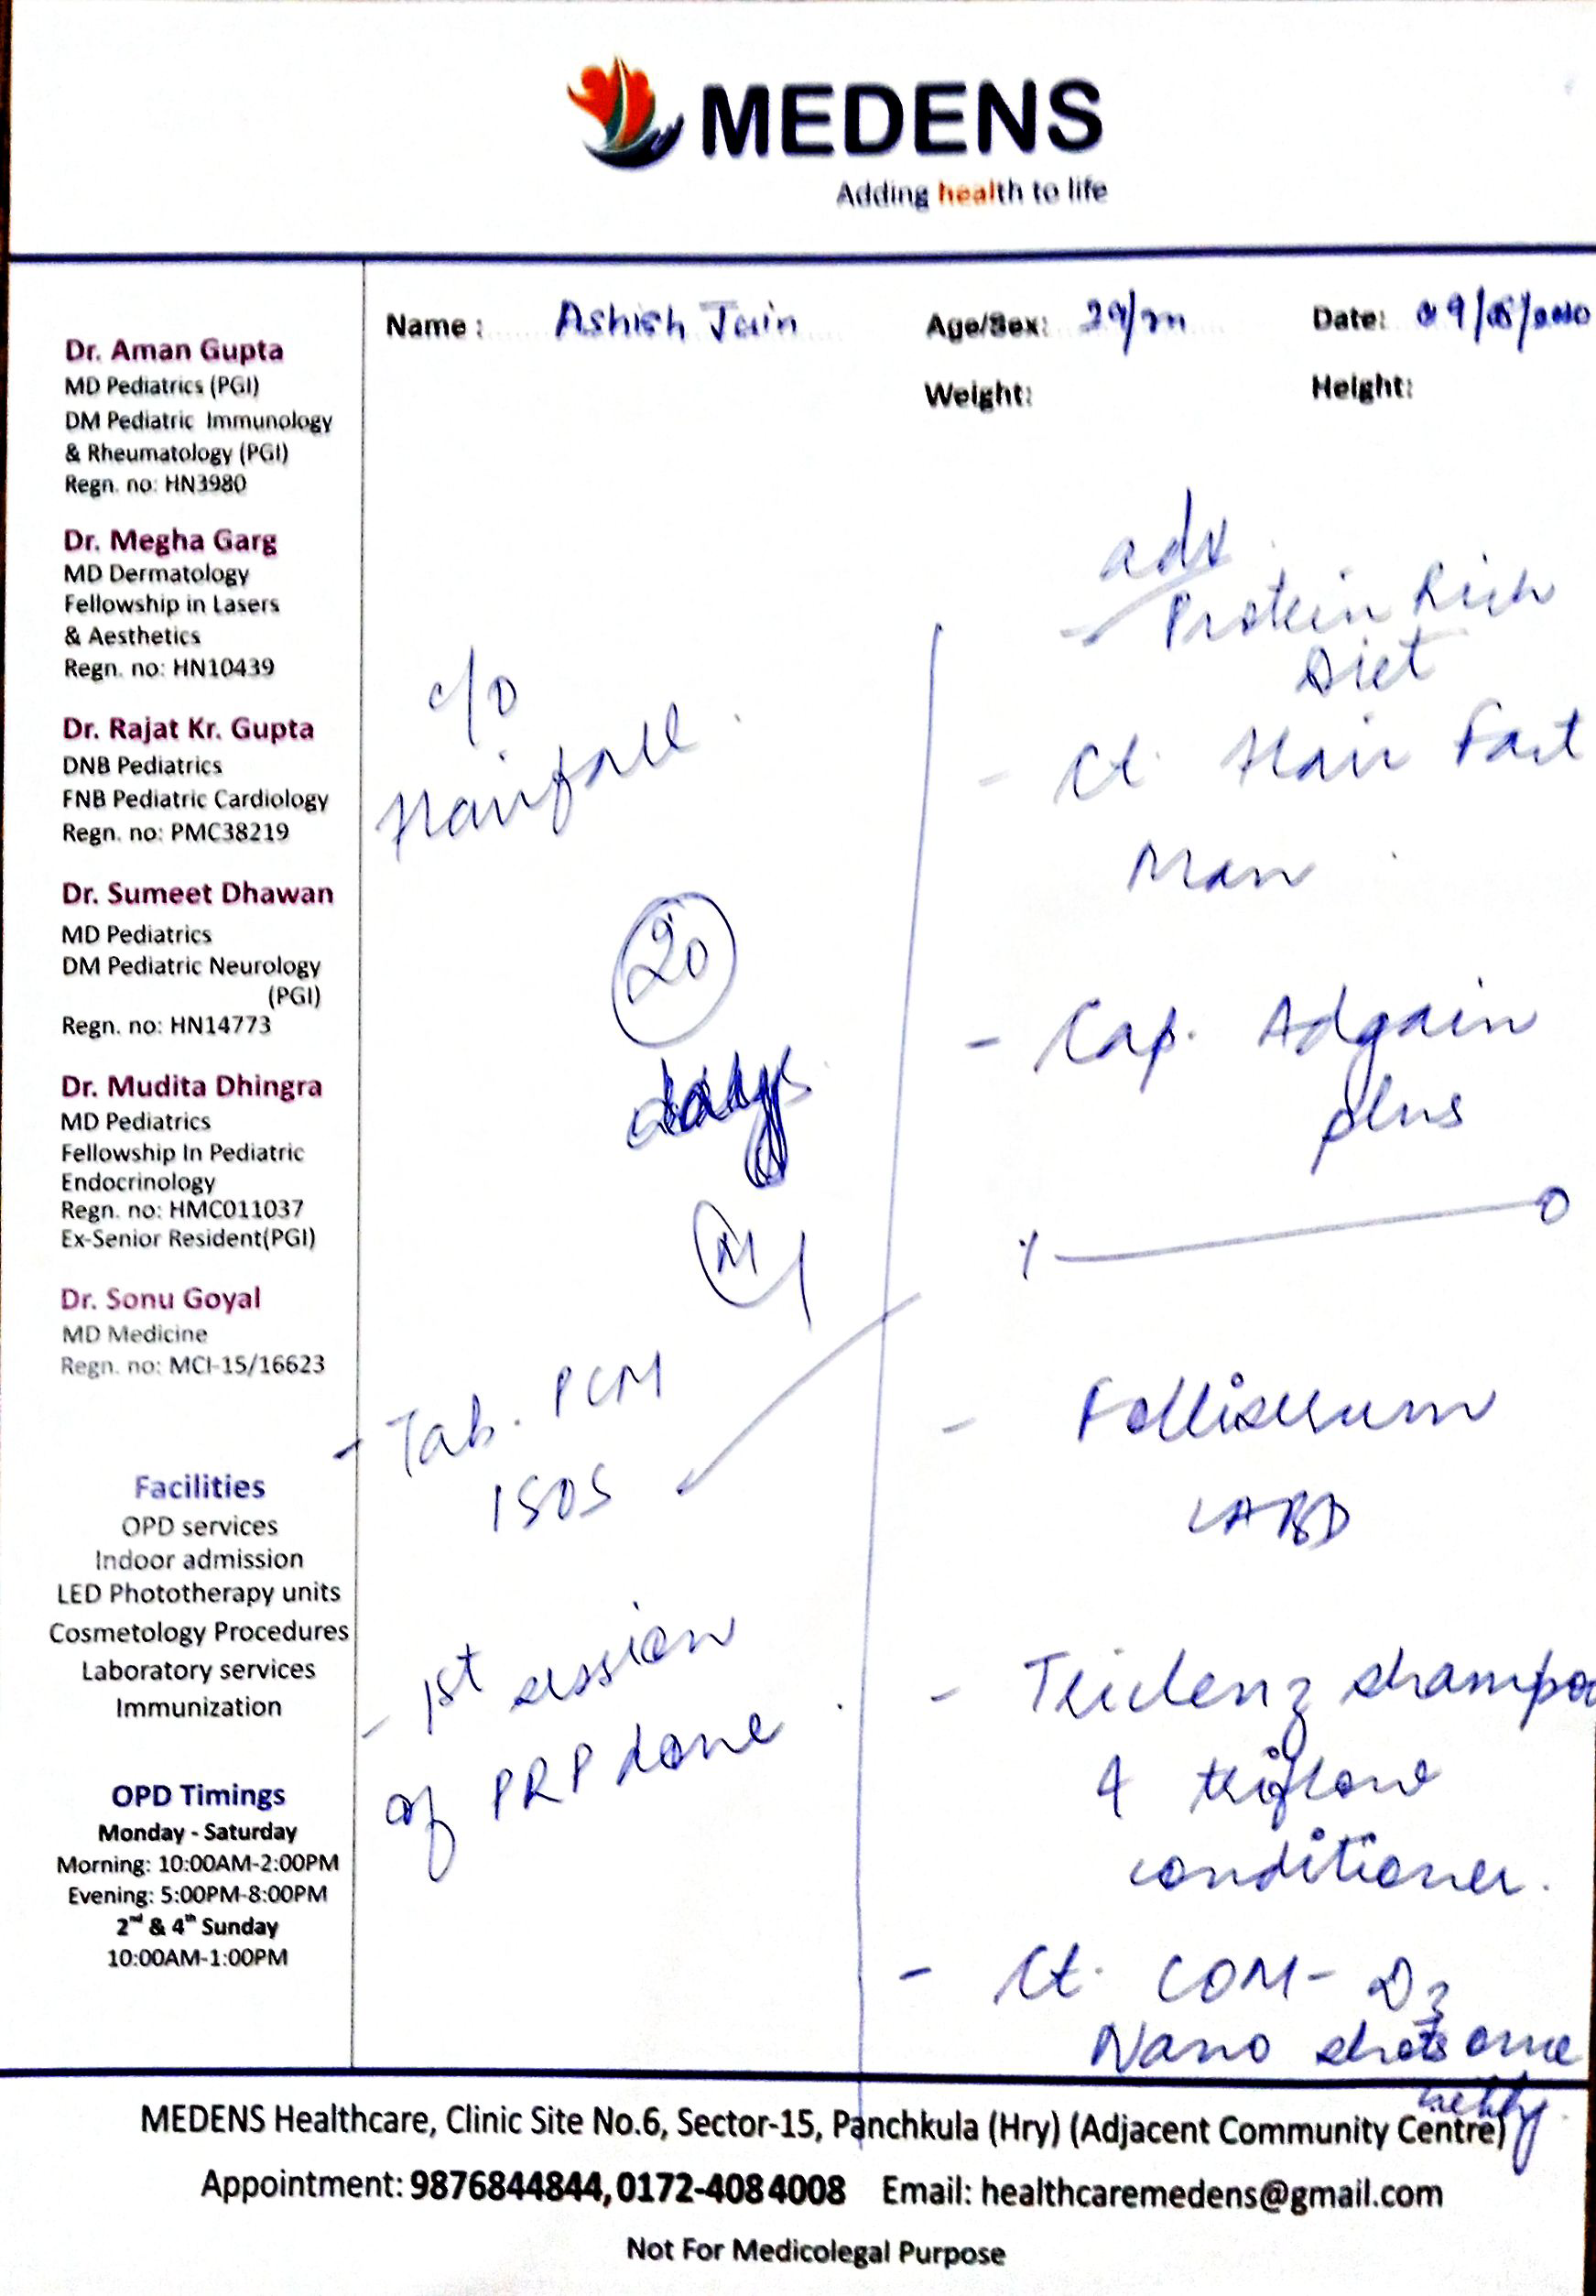 MEDENS
Adding health to life
Name : Ashish Jain Age/Sex: 29/m Date:
Weight: Height:
Dr. Aman Gupta
MD Pediatrics (PGI)
DM Pediatric Immunology
& Rheumatology (PGI)
Regn. no: HN3980
Dr. Megha Garg
MD Dermatology
Fellowship in Lasers
& Aesthetics
Regn. no: HN10439
Dr. Rajat Kr. Gupta
DNB Pediatrics
FNB Pediatric Cardiology
Regn. no: PMC38219
Dr. Sumeet Dhawan
MD Pediatrics
DM Pediatric Neurology
(PGI)
Regn. no: HN14773
Dr. Mudita Dhingra
MD Pediatrics
Fellowship In Pediatric
Endocrinology
Regn. no: HMC011037
Ex-Senior Resident(PGI)
Dr. Sonu Goyal
MD Medicine
Regn. no: MCI-15/16623
Facilities
OPD services
Indoor admission
LED Phototherapy units
Cosmetology Procedures
Laboratory services
Immunization
OPD Timings
Monday - Saturday
Morning: 10:00AM-2:00PM
Evening: 5:00PM-8:00PM
2nd & 4th Sunday
10:00AM-1:00PM
c/o
Hairfall
20
days
M
- Tab. PCM
1 SOS
- 1st session
of PRP done
adv
- Protein Rich
Diet
- Ct. Hair Fact
Man
- Cap. Adgain
plus
- Folliserum
LA BD
- Triclenz shampoo
& triflow
conditioner.
- Ct. COM-D3
Nano shots once
MEDENS Healthcare, Clinic Site No.6, Sector-15, Panchkula (Hry) (Adjacent Community Centre)
Appointment: 9876844844, 0172-4084008 Email: healthcaremedens@gmail.com
Not For Medicolegal Purpose